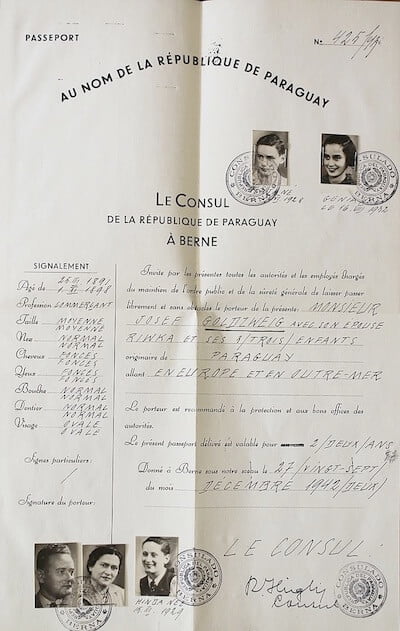 PASSEPORT
No. 425/42
AU NOM DE LA RÉPUBLIQUE DE PARAGUAY
CONSULADO
BERNA
1928
CONSULADO
BERNA
GUNIA
LE 16. 1932
LE CONSUL
DE LA RÉPUBLIQUE DE PARAGUAY
À BERNE
SIGNALEMENT
Âgé de 1891
1898
Profession COMMERÇANT
Taille MOYENNE
MOYENNE
Nez NORMAL
NORMAL
Cheveux FONCÉS
FONCÉS
Yeux FONCÉS
FONCÉS
Bouche NORMAL
NORMAL
Dentier NORMAL
NORMAL
Visage OVALE
OVALE
Signes particuliers:
/
Signature du porteur:
Invite par les présentes toutes les autorités et les employés chargés
du maintien de l'ordre public et de la sûreté générale de laisser passer
librement et sans obstacles le porteur de la présente: MONSIEUR
JOSEF GOLDZWEIG AVEC SON EPOUSE
RIWKA ET SES 3/TROIS/ENFANTS
originaire de PARAGUAY
allant EN EUROPE ET EN OUTRE-MER
Le porteur est recommandé à la protection et aux bons offices des
autorités.
Le présent passeport délivré est valable pour 2/DEUX/ANS
Donné à Berne sous notre sceau le 27/VINGT-SEPT/
du mois DECEMBRE 1942/DEUX/
LE CONSUL:
R. Hügly
Consul
CONSULADO
BERNA
CONSULADO
BERNA
CONSULADO
BERNA